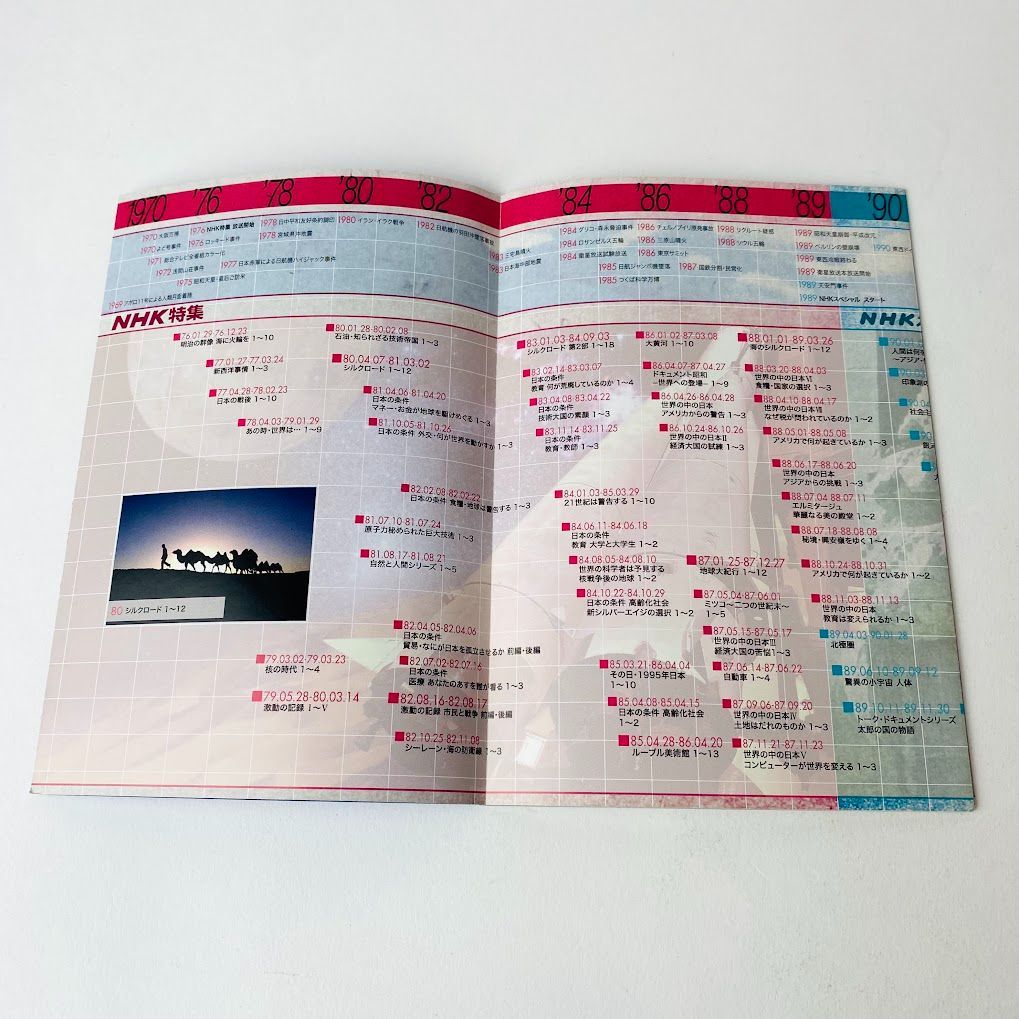 '1970 '76 '78 '80 '82 '84 '86 '88 '89 '90
1970 大阪万博
1970 よど号事件
1971 総合テレビ全番組カラー化
1972 浅間山荘事件
1975 昭和天皇・皇后ご訪米
1969 アポロ11号による人類月面着陸
1976 NHK特集 放送開始
1976 ロッキード事件
1977 日本赤軍による日航機ハイジャック事件
1978 日中平和友好条約調印
1978 宮城県沖地震
1980 イラン・イラク戦争
1982 日航機の羽田沖墜落事故
1983 三宅島噴火
1983 日本海中部地震
1984 グリコ・森永脅迫事件
1984 ロサンゼルス五輪
1984 衛星放送試験放送
1985 日航ジャンボ機墜落
1985 つくば科学万博
1986 チェルノブイリ原発事故
1986 三原山噴火
1986 東京サミット
1987 国鉄分割・民営化
1988 リクルート疑惑
1988 ソウル五輪
1989 昭和天皇崩御・平成改元
1989 ベルリンの壁崩壊
1989 東西冷戦終わる
1989 衛星放送本放送開始
1989 天安門事件
1989 NHKスペシャル スタート
1990 東西ド
NHK特集
76.01.29-76.12.23
明治の群像 海に火輪を 1〜10
77.01.27-77.03.24
新西洋事情 1〜3
77.04.28-78.02.23
日本の戦後 1〜10
78.04.03-79.01.29
あの時・世界は… 1〜9
80 シルクロード 1〜12
79.03.02-79.03.23
核の時代 1〜4
79.05.28-80.03.14
激動の記録 I〜V
80.01.28-80.02.08
石油・知られざる技術帝国 1〜3
80.04.07-81.03.02
シルクロード 1〜12
81.04.06-81.04.20
日本の条件
マネー・お金が地球を駆けめぐる 1〜3
81.10.05-81.10.26
日本の条件 外交・何が世界を動かすか 1〜3
82.02.08-82.02.22
日本の条件 食糧・地球は警告する 1〜3
81.07.10-81.07.24
原子力秘められた巨大技術 1〜3
81.08.17-81.08.21
自然と人間シリーズ 1〜5
82.04.05-82.04.06
日本の条件
貿易・なにが日本を孤立させるか 前編・後編
82.07.02-82.07.16
日本の条件
医療 あなたのあすを誰が看る 1〜3
82.08.16-82.08.17
激動の記録 市民と戦争 前編・後編
82.10.25-82.11.08
シーレーン・海の防衛線 1〜3
83.01.03-84.09.03
シルクロード 第2部 1〜18
83.02.14-83.03.07
日本の条件
教育 何が荒廃しているのか 1〜4
83.04.08-83.04.22
日本の条件
技術大国の素顔 1〜3
83.11.14-83.11.25
日本の条件
教育・教師 1〜3
84.01.03-85.03.29
21世紀は警告する 1〜10
84.06.11-84.06.18
日本の条件
教育 大学と大学生 1〜2
84.08.05-84.08.10
世界の科学者は予見する
核戦争後の地球 1〜2
84.10.22-84.10.29
日本の条件 高齢化社会
新シルバーエイジの選択 1〜2
85.03.21-86.04.04
その日・1995年日本
1〜10
85.04.08-85.04.15
日本の条件 高齢化社会
1〜2
85.04.28-86.04.20
ルーブル美術館 1〜13
86.01.02-87.03.08
大黄河 1〜10
86.04.07-87.04.27
ドキュメント昭和
−世界への登場− 1〜9
86.04.26-86.04.28
世界の中の日本
アメリカからの警告 1〜3
86.10.24-86.10.26
世界の中の日本II
経済大国の試練 1〜3
87.01.25-87.12.27
地球大紀行 1〜12
87.05.04-87.06.01
ミツコ〜二つの世紀末〜
1〜5
87.05.15-87.05.17
世界の中の日本III
経済大国の苦悩1〜3
87.06.14-87.06.22
自動車 1〜4
87.09.06-87.09.20
世界の中の日本IV
土地はだれのものか 1〜3
87.11.21-87.11.23
世界の中の日本V
コンピューターが世界を変える 1〜3
88.01.01-89.03.26
海のシルクロード 1〜12
88.03.20-88.04.03
世界の中の日本VI
食糧・国家の選択 1〜3
88.04.10-88.04.17
世界の中の日本VII
なぜ税が問われているのか 1〜2
88.05.01-88.05.08
アメリカで何が起きているか 1〜3
88.06.17-88.06.20
世界の中の日本
アジアからの挑戦 1〜3
88.07.04 88.07.11
エルミタージュ
華麗なる美の殿堂 1〜2
88.07.18-88.08.08
秘境・興安嶺をゆく 1〜4
88.10.24-88.10.31
アメリカで何が起きているか 1〜2
88.11.03-88.11.13
世界の中の日本
教育は変えられるか 1〜3
89.04.03-90.01.28
北極圏
89.06.10-89.09.12
驚異の小宇宙 人体
89.10.11-89.11.30
トーク・ドキュメントシリーズ
太郎の国の物語
NHKス
人間は何を
〜アジア・
印象派の
社会主